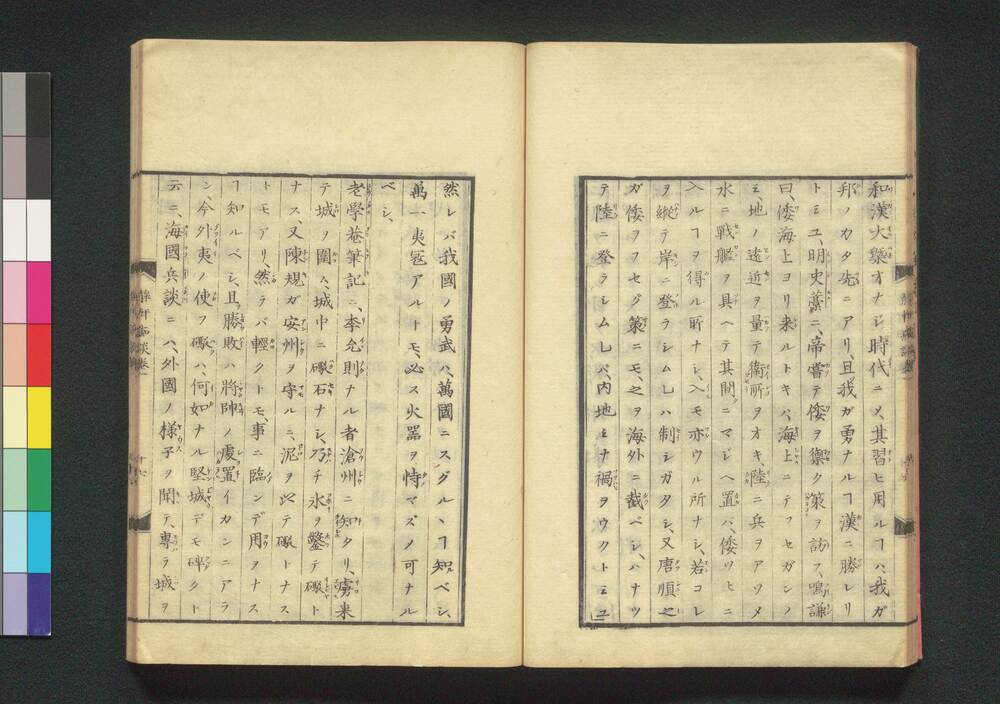 和漢火攀オナジ時代ニメ、其習ヒ用ルヿハ、我ガ
邦ノカタ先ニアリ、且我ガ勇ナルヿ漢ニ勝レリ
トミユ、明史藁ニ、帝嘗テ倭ヲ禦ク策ヲ訪フ、鳴謙
曰、倭海上ヨリ来ルトキハ、海上ニテフセガンノ
ミ、地ノ遠近ヲ量テ衞所ヲオキ、陸ニ兵ヲアツメ
水ニ戦艦ヲ具ヘテ其間ニマジヘ置バ、倭ツヒニ
入ルヿヲ得ル所ナシ、入モ亦ウル所ナシ、若コレ
ヲ縦テ岸ニ登ラシムレハ制シガタシ、又唐順之
ガ倭ヲフセグ策ニモ、之ヲ海外ニ截ベシ、ハナツ
テ陸ニ登ラシムレバ、内地ミナ禍ヲウクトミユ
然レバ我國ノ勇武ハ、萬國ニスグルヽヿ知ベシ、
萬一夷冦アルトモ、必ス火器ヲ恃マズメ可ナル
ベシ、
老學菴筆記ニ、李允則ナル者滄州ニ知タリ、虜来
テ城ヲ圍ム、城中ニ礟石ナシ、乃チ氷ヲ鑿テ礟ト
ナス、又陳規ガ安州ヲ守ルニ、泥ヲ以テ礟トナス
トモアリ、然ラバ輕クトモ、事ニ臨ンデ用ヲナス
ヿ知ルベシ、且勝敗ハ將帥ノ處置イカンニアラ
ン、今外夷ノ使フ礟ハ、何如ナル堅城デモ碎クト
云ニ、海國兵談ニハ、外國ノ様子ヲ聞テ、專ラ城ヲ